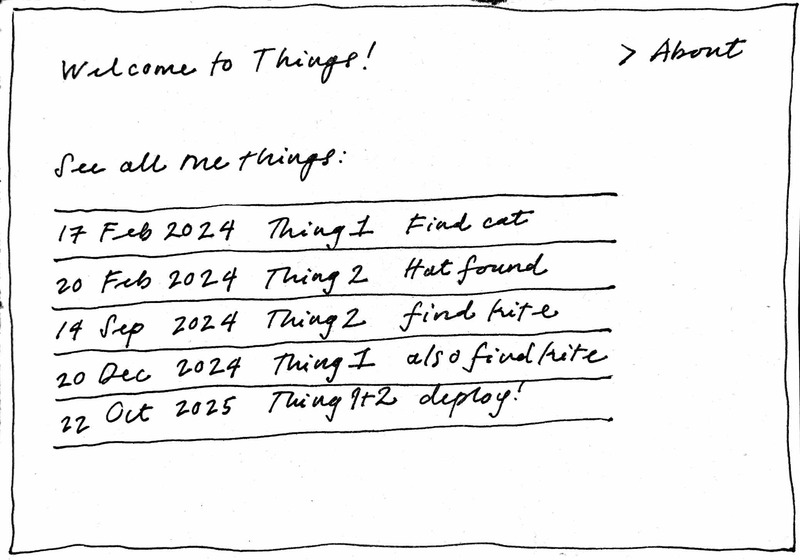 Welcome to Things!
> About
See all the things:
17 Feb 2024 Thing 1 Find cat
20 Feb 2024 Thing 2 Hat found
14 Sep 2024 Thing 2 find kite
20 Dec 2024 Thing 1 also find kite
22 Oct 2025 Thing 1+2 deploy!